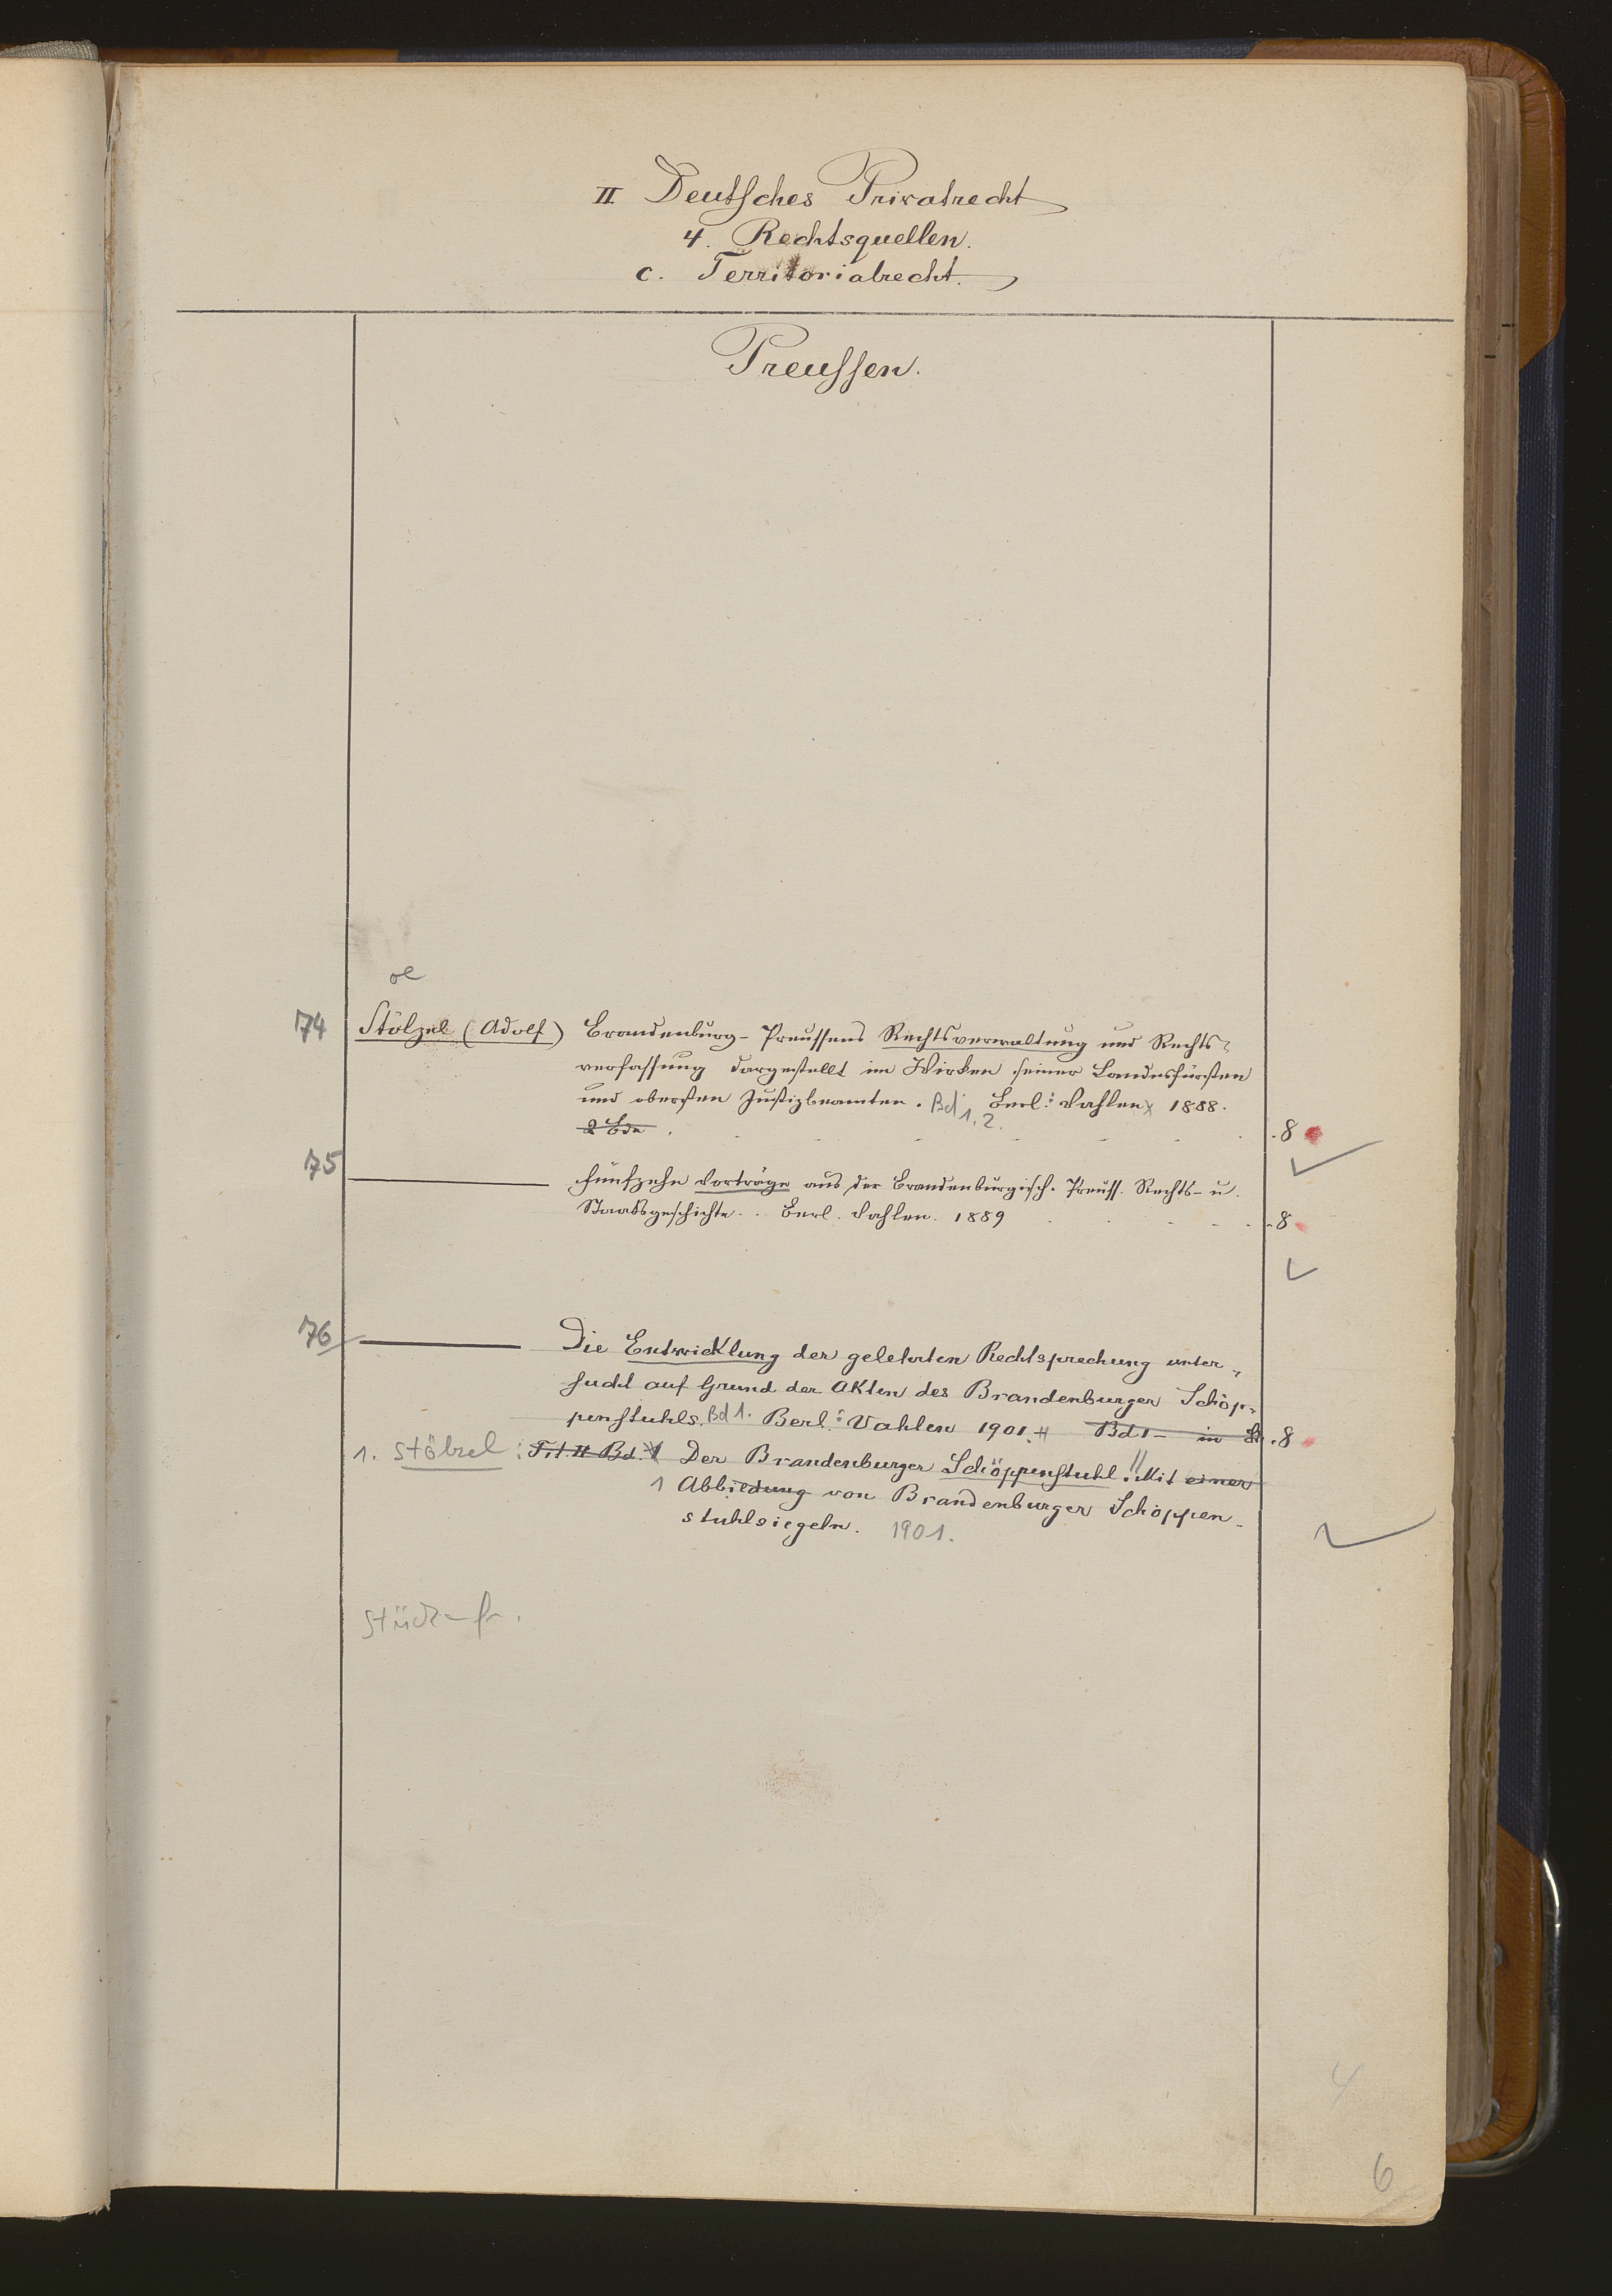 II Deutsches Privatrecht
4. Rechtsquellen.
c. Territorialrecht.
Preussen.
oe
74 Stölzel (Adolf) Brandenburg-Preussens Rechtsverwaltung und Rechts-
verfassung dargestellt im Wirken seiner Landesfürsten
und obersten Justizbeamten. Bd 1.2. Berl.: Vahlen 1888.
2 Bde . 8
75 Fünfzehn Vorträge aus der Brandenburgisch. Preuss. Rechts- u.
Staatsgeschichte. Berl. Vahlen. 1889 8
76 Die Entwicklung der gelehrten Rechtsprechung unter-
sucht auf Grund der Akten des Brandenburger Schöp-
penstuhls. Bd 1. Berl.: Vahlen 1901. Bd 1 - in 8
1. Stölzel: Tit. II Bd. 1 Der Brandenburger Schöppenstuhl. Mit einer
1 Abbildung von Brandenburger Schöppen-
stuhlsiegeln. 1901.
4
6